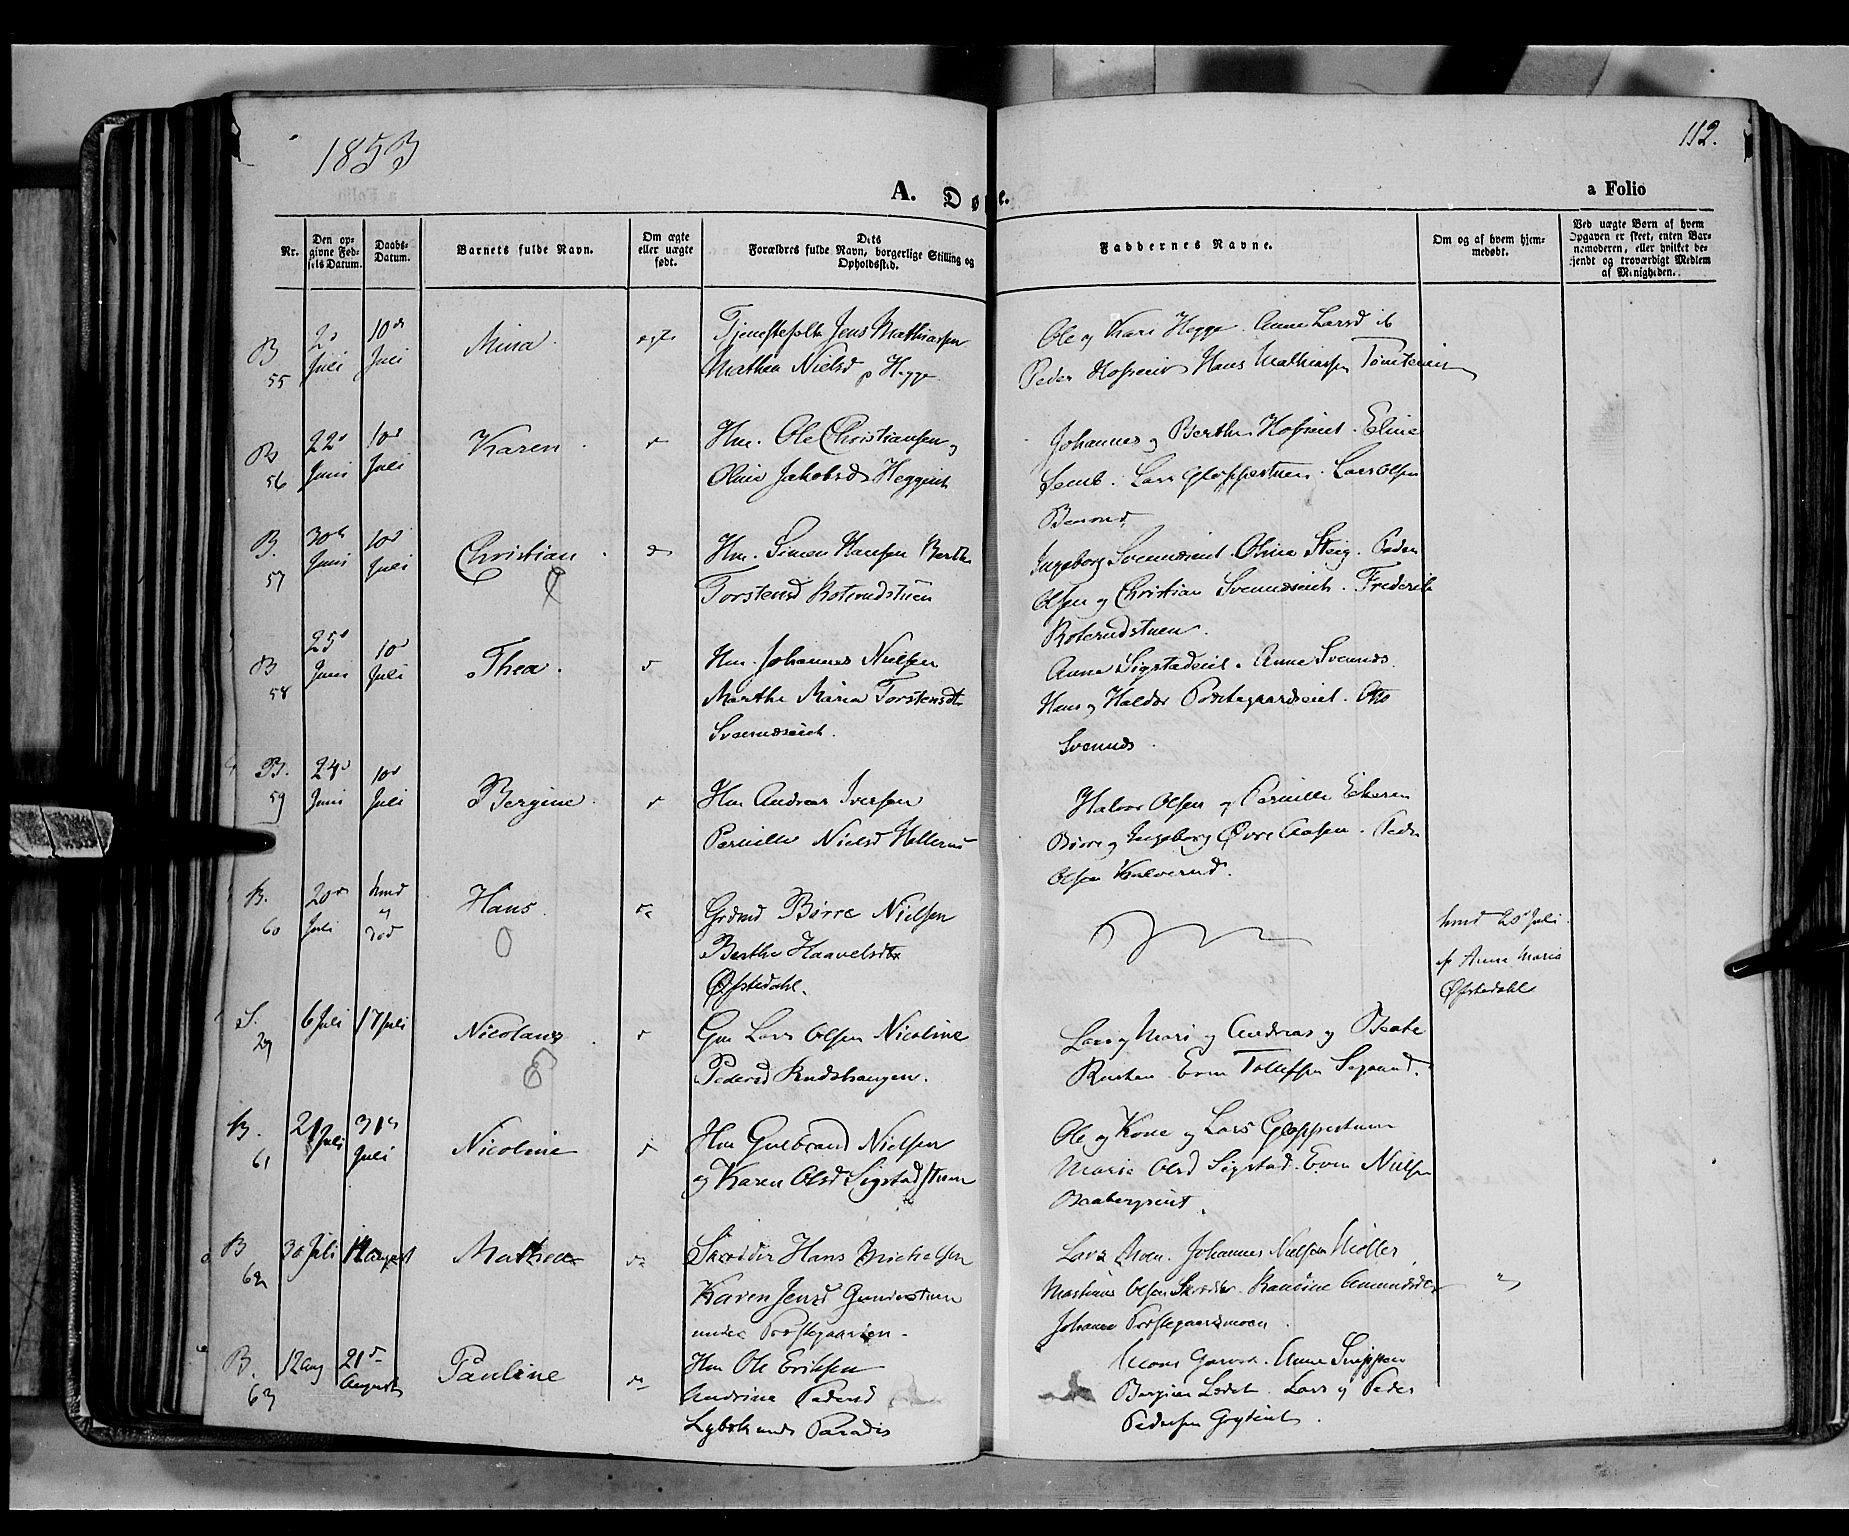 1853
112.
A. Døpte.
a Folio
Nr.
Den opgivne Fødsels Datum.
Daabs-Datum.
Barnets fulde Navn.
Om ægte eller uægte født.
Dets Forældres fulde Navn, borgerlige Stilling og Opholdssted.
Faddernes Navne.
Om og af hvem hjemmedøbt.
Ved uægte Børn af hvem Opgaven er skeet, enten Barnemoderen, eller hvilket bekjendt og troværdigt Medlem af Menigheden.
B 55
2d Juli
10de Juli
Mina
ægte
Tjenestefolk Jens Mathiassen
Mathea Nielsd p Hegge
Ole og Kari Hegge. Anne Larsd ib
Peder Hofseiet Hans Mathiassen
B 56
22d Juni
10d Juli
Karen
Hm. Ole Christiansen og
Oline Jakobsd Heggeiet
Johannes og Berthe Hofseiet. Eline
Lars Gloppestuen. Lars Olsen
B. 57
30te Juni
10d Juli
Christian
Hm. Simen Hansen Berthe
Torstensd Roterudstuen
Ingeborg Svennæseiet. Oline Steig. Peder
Olsen og Christian Svennæseiet. Frederik
Roterudstuen.
B 58
25d Juni
10d Juli
Thea.
Hm. Johannes Nielsen
Marthe Maria Torstensdtr
Svennæseiet.
Anne Sigstadeiet. Anne Svennæs.
Hans og Haldor Præstegaardseiet. Otto
Svennæs.
B. 59
24d Juni
10d Juli
Bergine.
Hm Andreas Iversen
Pernille Nielsd Hellerud
Halvor Olsen og Pernille Ekeren
Børre og Ingeborg Øvre Aasen. Peder
Olsen Kalverud.
B. 60
20de Juli
hmd og død
Hans.
Grdmd Børre Nielsen
Berthe Haavelsdtr
Øfstedahl.
hmd 20d Juli
af Anne Maria
Øfstedahl
S. 29
6 Juli
17 Juli
Nicolaus
Gm Lars Olsen Nicoline
Pedersd Rudshaugen.
Lars og Mari og Andreas og Beate
Rusten. Even Tollefsen
B. 61
21 Juli
31te Juli
Nicoline
Hm Gulbrand Nielsen
og Karen Olsd Sigstadstuen
Ole og Kone og Lars Gloppestuen
Marie Olsd Sigstad. Even Nielsen
Baabergseiet.
B 62
30 Juli
14 August
Mathea
Skræder Hans Michelsen
Karen Jensd Gunderstuen
under Præstegaarden.
Lars Moen. Johannes Nielsen Møller,
Mathias Olsen Skræder. Randine Amundsdtr
Johanne Præstegaardsmoen
B. 63
12 Aug
21d August
Pauline
Hm Ole Eriksen
Andrine Pedersd
Paradis
Anne Snippen
Lars og Peder
Pedersen